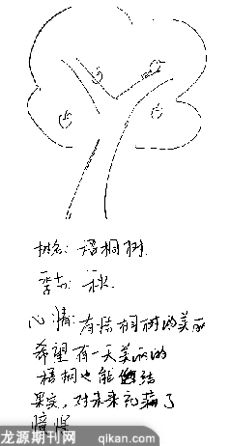 树名：梧桐树
季节：秋
心情：有梧桐树的美丽
希望有一天美丽的
梧桐也能结
果实，对未来充满了
憧憬
龙源期刊网 qikan.com